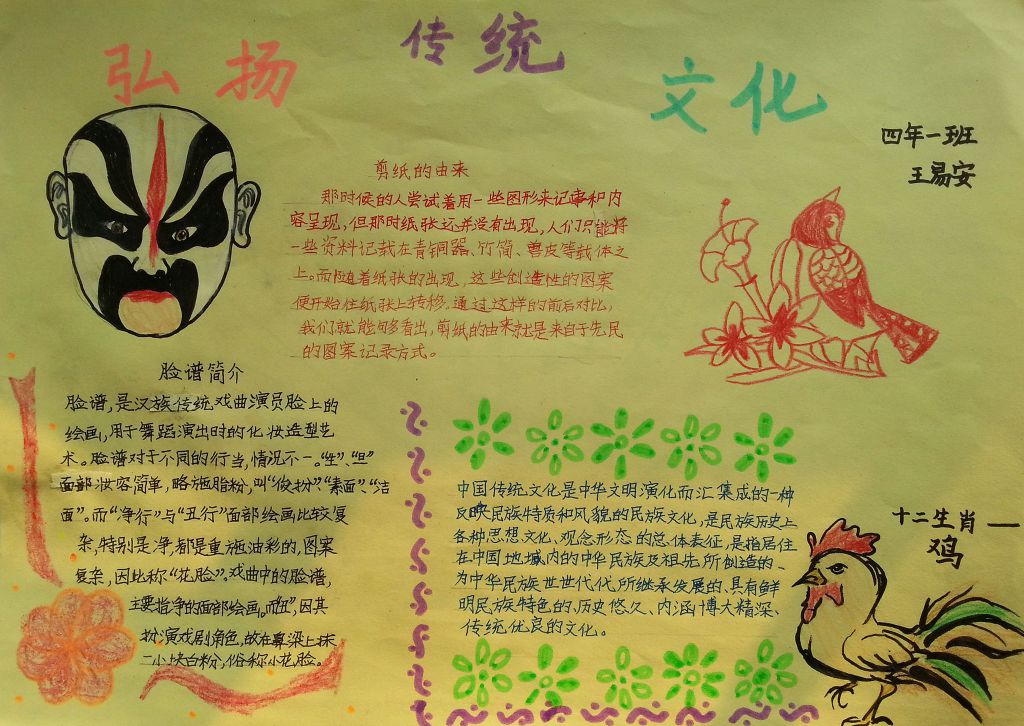 弘扬
传统
文化
四年一班
王易安
剪纸的由来
那时候的人尝试着用一些图形来记事和内
容呈现,但那时纸张还并没有出现,人们只能将
一些资料记载在青铜器、竹简、兽皮等载体之
上。而随着纸张的出现,这些创造性的图案
便开始往纸张上转移。通过这样的前后对比,
我们就能够看出,剪纸的由来就是来自于先民
的图案记录方式。
脸谱简介
脸谱,是汉族传统戏曲演员脸上的
绘画,用于舞蹈演出时的化妆造型艺
术。脸谱对于不同的行当,情况不一。“生”、“旦”
面部妆容简单,略施脂粉,叫“俊扮”、“素面”、“洁
面”。而“净行”与“丑行”面部绘画比较复
杂,特别是净,都是重施油彩的,图案
复杂,因此称“花脸”。戏曲中的脸谱,
主要指净的面部绘画。而“丑”,因其
扮演戏剧角色,故在鼻梁上抹
一小块白粉,俗称小花脸。
中国传统文化是中华文明演化而汇集成的一种
反映民族特质和风貌的民族文化,是民族历史上
各种思想文化、观念形态的总体表征,是指居住
在中国地域内的中华民族及祖先所创造的、
为中华民族世世代代所继承发展的、具有鲜
明民族特色的、历史悠久、内涵博大精深、
传统优良的文化。
十二生肖一
鸡